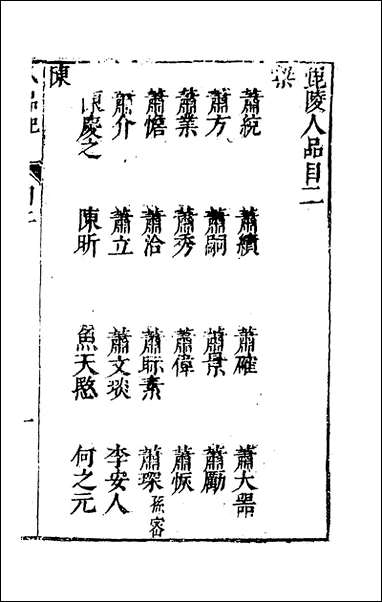 毘陵人品目二
梁
蕭統 蕭續 蕭確 蕭大器
蕭方 蕭嗣 蕭景 蕭勵
蕭業 蕭秀 蕭偉 蕭恢
蕭憺 蕭洽 蕭眎素 蕭琛 孫密
蕭介 蕭立 蕭文琰 李安人
陳慶之 陳昕 魚天愍 何之元
陳
人品記 目二 一